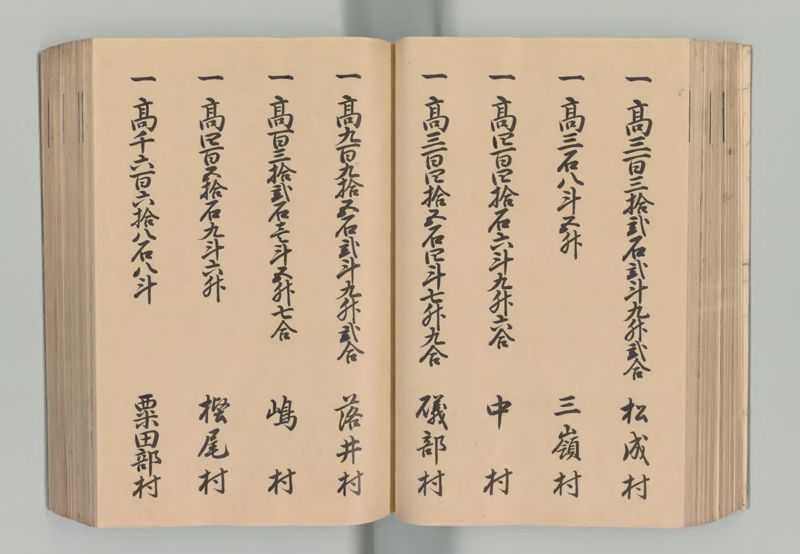 一 髙三百三拾弐石弐斗九升弐合 松成村
一 髙三石八斗五升 三嶺村
一 髙四百四拾石六斗九升六合 中村
一 髙三百四拾五石四斗七升九合 磯部村
一 髙九百九拾五石弐斗九升弐合 落井村
一 髙百三拾弐石壱斗五升七合 嶋村
一 髙四百五拾石九斗六升 樫尾村
一 髙千六百六拾八石八斗 粟田部村